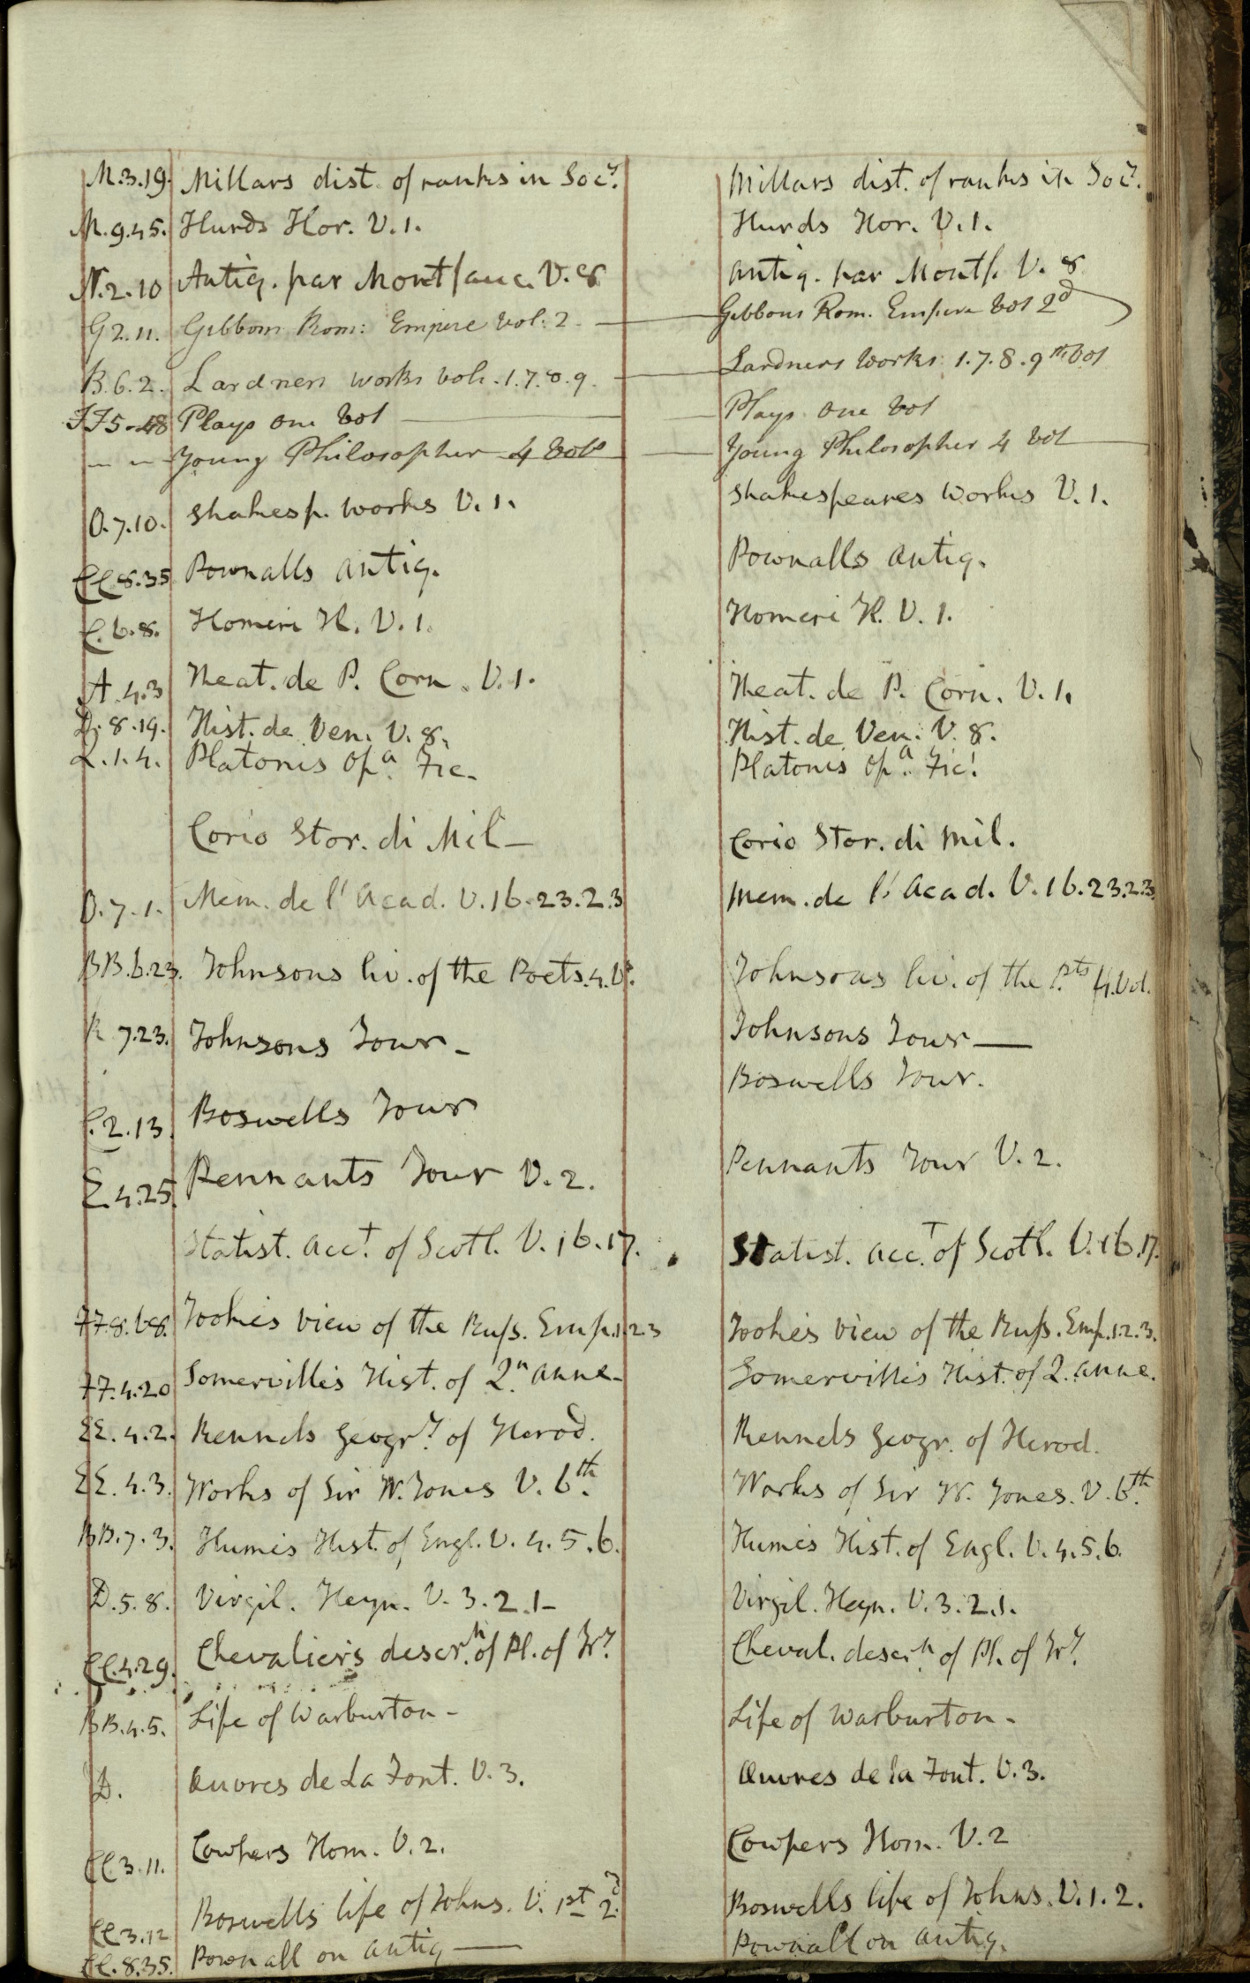 M.3.19. Millars dist. of ranks in Socy. Millars dist. of ranks in Socy.
M.9.45. Hurds Hor. V.1. Hurds Hor. V.1.
N.2.10 Antiq. par Montfauc. V.8 Antiq. par Montf. V.8
G 2.11. Gibbons Rom: Empire vol: 2. Gibbons Rom. Empire vol 2d
B.6.2. Lardners works vols. 1.7.8.9. Lardners works 1.7.8.9th vol
FF5-48 Plays one vol Plays one vol
Young Philosopher 4 vols Young Philosopher 4 vol
O.7.10. Shakesp. works V.1. Shakespeares works V.1.
CC8.35 Pownalls Antiq. Pownalls Antiq.
C.6.8. Homeri Il. V.1. Homeri Il. V.1.
A.4.3 Theat. de P. Corn. V.1. Theat. de P. Corn. V.1.
D.8.19. Hist. de Ven. V.8. Hist. de Ven. V.8.
L.1.4. Platonis Opa. Fic. Platonis Opa. Fic.
Corio Stor. di Mil— Corio Stor. di Mil.
O.7.1. Mem. de l'Acad. V.16.23.2.3 Mem. de l'Acad. V.16.23.2.3.
BB.6.23. Johnsons liv. of the Poets. 4. Vs. Johnsons liv. of the Pts 4. Vol.
R 7.23. Johnsons Tour- Johnsons Tour—
C.2.13. Boswells Tour Boswells Tour.
E.4.25. Pennants Tour V.2. Pennants Tour V.2.
Statist. Acct. of Scotl. V.16.17. Statist. Acct. of Scotl. V.16.17.
FF.8.68. Tooke's view of the Russ. Emp. 1.2 3 Tooke's view of the Russ. Emp. 1.2.3.
FF.4.20 Somerville's Hist. of Qn. Anne- Somerville's Hist. of Q. Anne.
EE.4.2. Rennels Geogry. of Herod. Rennels Geogr. of Herod.
EE.4.3. Works of Sir W. Jones V.6th. Works of Sir W. Jones. V.6th.
BB.7.3. Hume's Hist. of Engl. V.4.5.6. Hume's Hist. of Engl. V.4.5.6.
D.5.8. Virgil. Heyn. V.3.2.1- Virgil. Heyn. V.3.2.1.
CC.4.29. Chevalier's descrn. of Pl. of Try. Cheval. descrn. of Pl. of Try.
BB.4.5. Life of Warburton- Life of Warburton-
D. Œuvres de La Font. V.3. Œuvres de la Font. V.3.
CC3.11. Cowpers Hom. V.2. Cowpers Hom. V.2
CC3.12 Boswells life of Johns. V. 1st 2d. Boswells life of Johns. V.1.2.
CC.8.35. Pownall on Antiq— Pownall on Antiq.